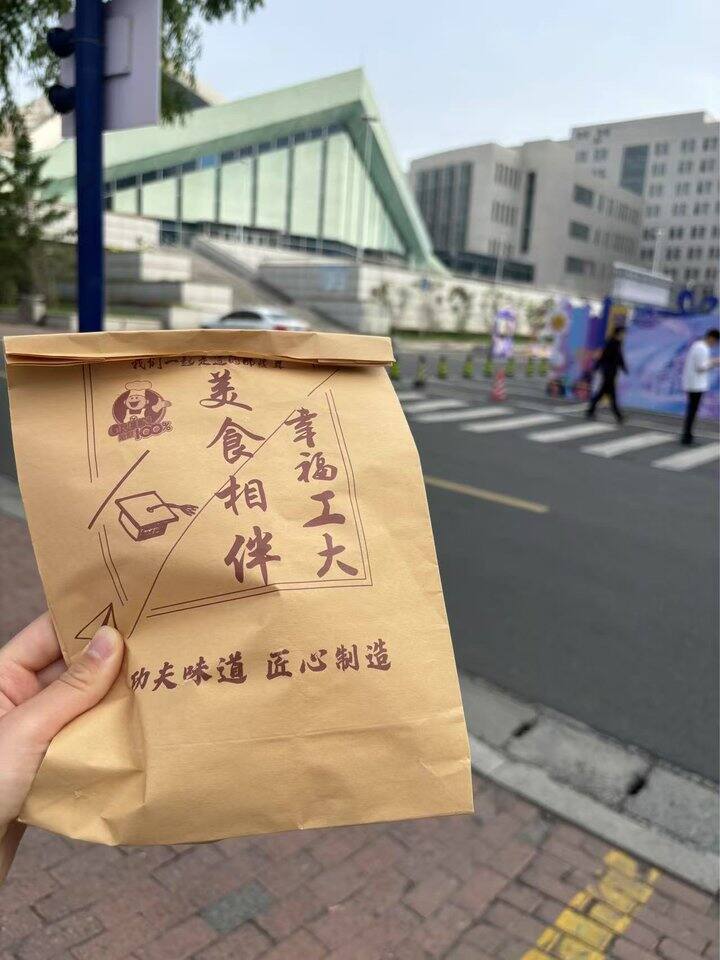 我们一起走过的那些
美食相伴
幸福工大
100%
功夫味道 匠心制造